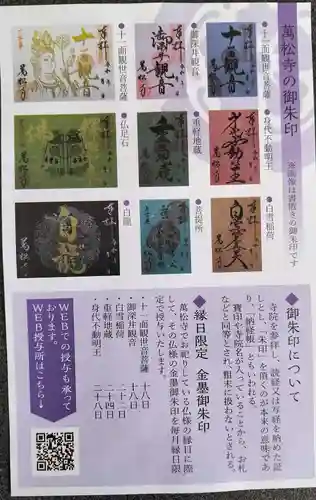 萬松寺の御朱印
※画像は書置きの御朱印です
●十一面観世音菩薩
●御深井観音
●十一面観世音菩薩
●身代不動明王
●重軽地蔵
●仏足石
●白雪稲荷
●菩提所
●白龍
十一面観音
奉拝
萬松寺
白龍
◆御朱印について
寺院を参拝し、読経又は写経を納めた証
しとし「朱印」を頂くのが本来の意味であ
り、「納経帳」ともいわれる。
寶印や寺院名が入っていることから、お札
などと同等とされ、粗末に扱わないとされる。
◆縁日限定 金墨御朱印
萬松寺でお祀りしている仏様の縁日に際
して、その仏様の金墨御朱印を毎月縁日限
定で授与いたします。
・十一面観世音菩薩 十八日
・御深井観音 十八日
・白雪稲荷 二十二日
・重軽地蔵 二十四日
・身代不動明王 二十八日
WEBでの授与も承って
おります。
WEB授与所はこちら↓